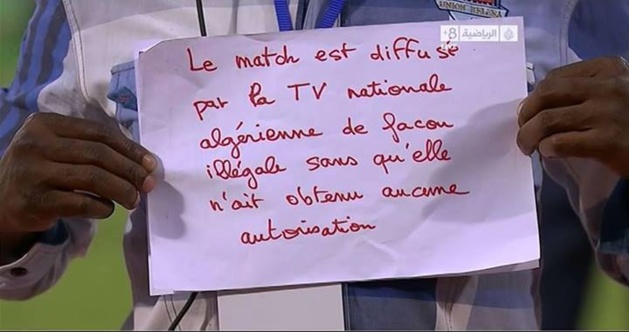 UNION BELENA
الرياضية +8
Le match est diffusé
par la TV nationale
algérienne de facon
illégale sans qu'elle
n'ait obtenu aucune
autorisation